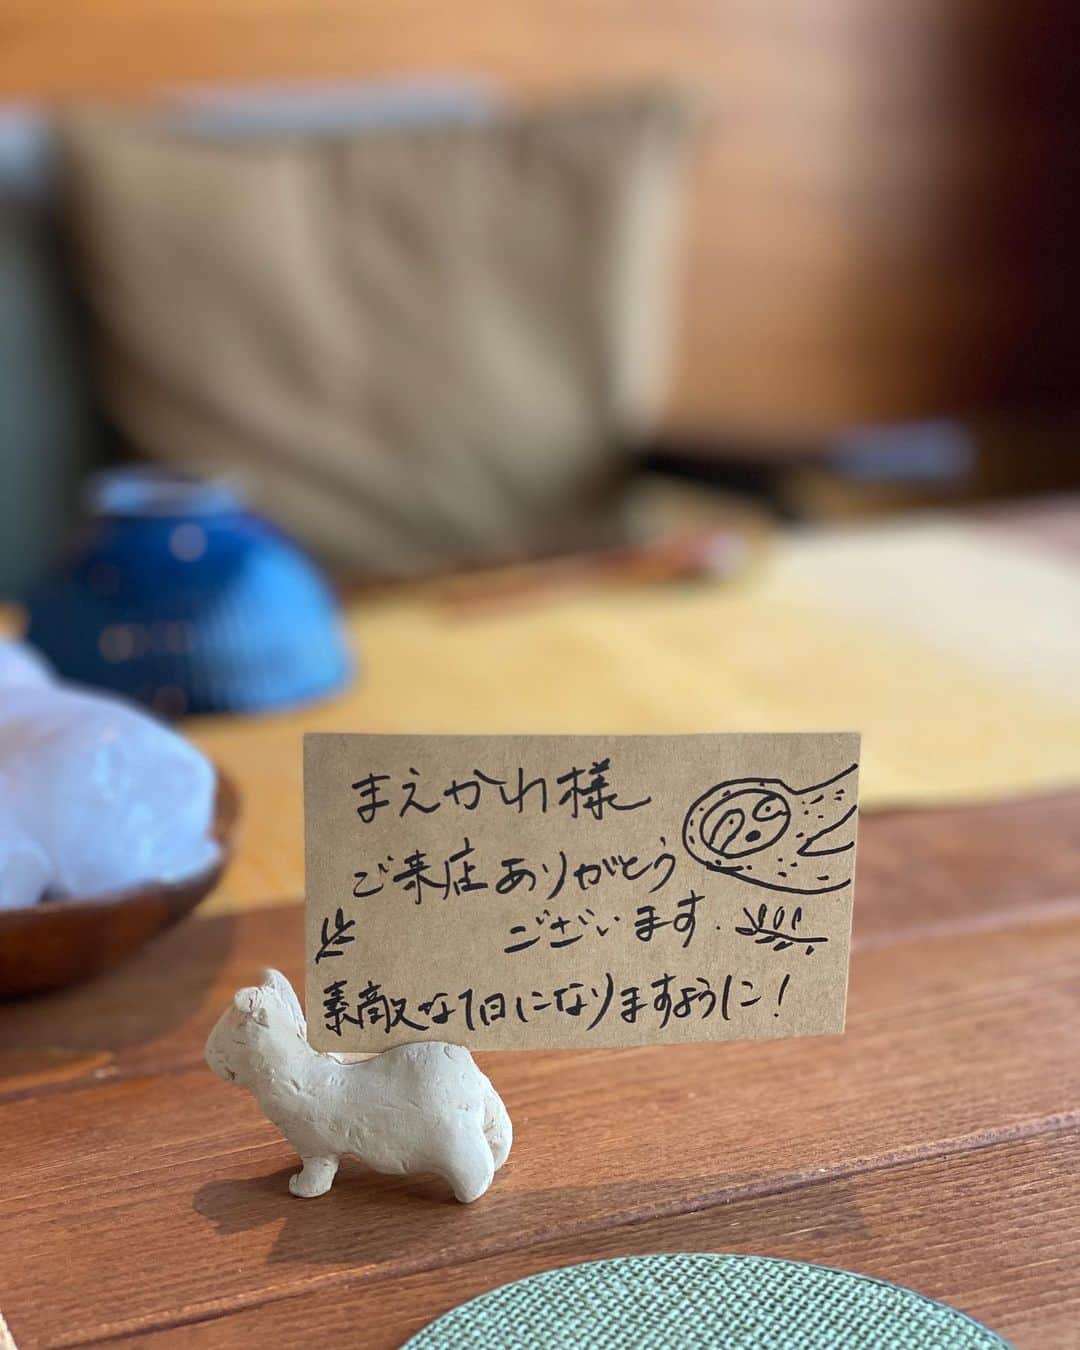 まえかわ様
ご来店ありがとう
ございます.
素敵な1日になりますように!